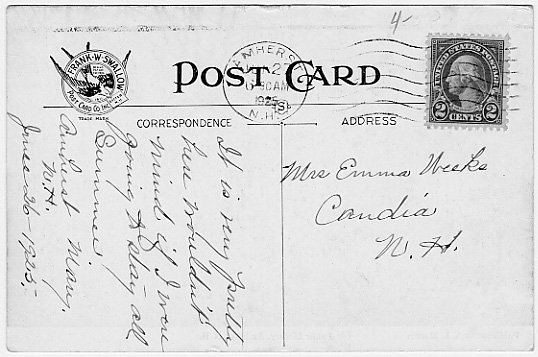 4-
FRANK·W·SWALLOW
POST CARD CO. INC.
TRADE MARK
POST CARD
AMHERST
1925
N.H.
UNITED STATES POSTAGE
2 CENTS 2
CORRESPONDENCE
ADDRESS
It is very pretty
here wouldn't
mind if I were
going to stay all
Summer
Mary.
Amherst
N.H.
June 26-1925.
Mrs Emma Weeks
Candia
N.H.